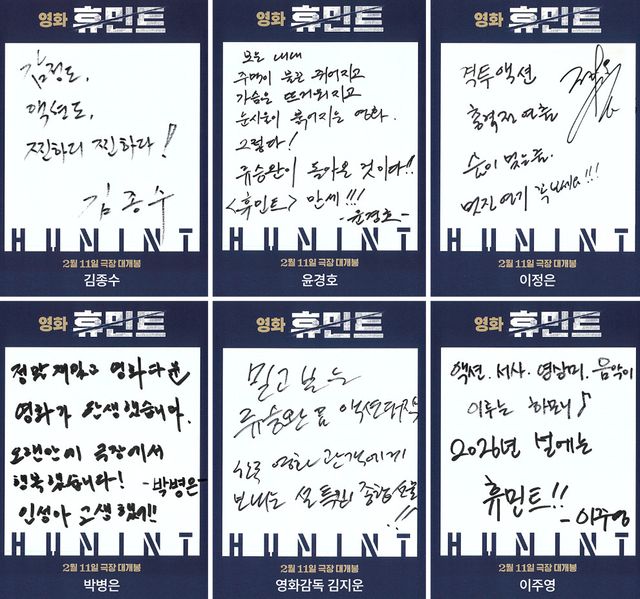 영화 휴민트
감정도,
액션도,
찐하디 찐하다!
김종수
HUMINT
2월 11일 극장 대개봉
김종수
영화 휴민트
보는 내내
주먹이 불끈 쥐어지고
가슴은 뜨거워지고
눈시울이 붉어지는 영화.
그렇다!
류승완이 돌아온 것이다!!
<휴민트> 만세!!!
-윤경호-
HUMINT
2월 11일 극장 대개봉
윤경호
영화 휴민트
격투액션
총격전 연출
숨이 멎을듯.
멋진연기 꼭보세요!!!
HUMINT
2월 11일 극장 대개봉
이정은
영화 휴민트
정말 재밌고 영화다운
영화가 탄생했습니다.
오랜만에 극장에서
행복했습니다! -박병은-
인성아 고생했어!!
HUMINT
2월 11일 극장 대개봉
박병은
영화 휴민트
믿고 보는
류승완 표 액션대작
한국 영화 관객에게
보내는 설 특선 종합선물
!!!
HUMINT
2월 11일 극장 대개봉
영화감독 김지운
영화 휴민트
액션. 서사. 영상미. 음악이
이루는 하모니♪
2026년 설에는
휴민트!!
-이주영
HUMINT
2월 11일 극장 대개봉
이주영